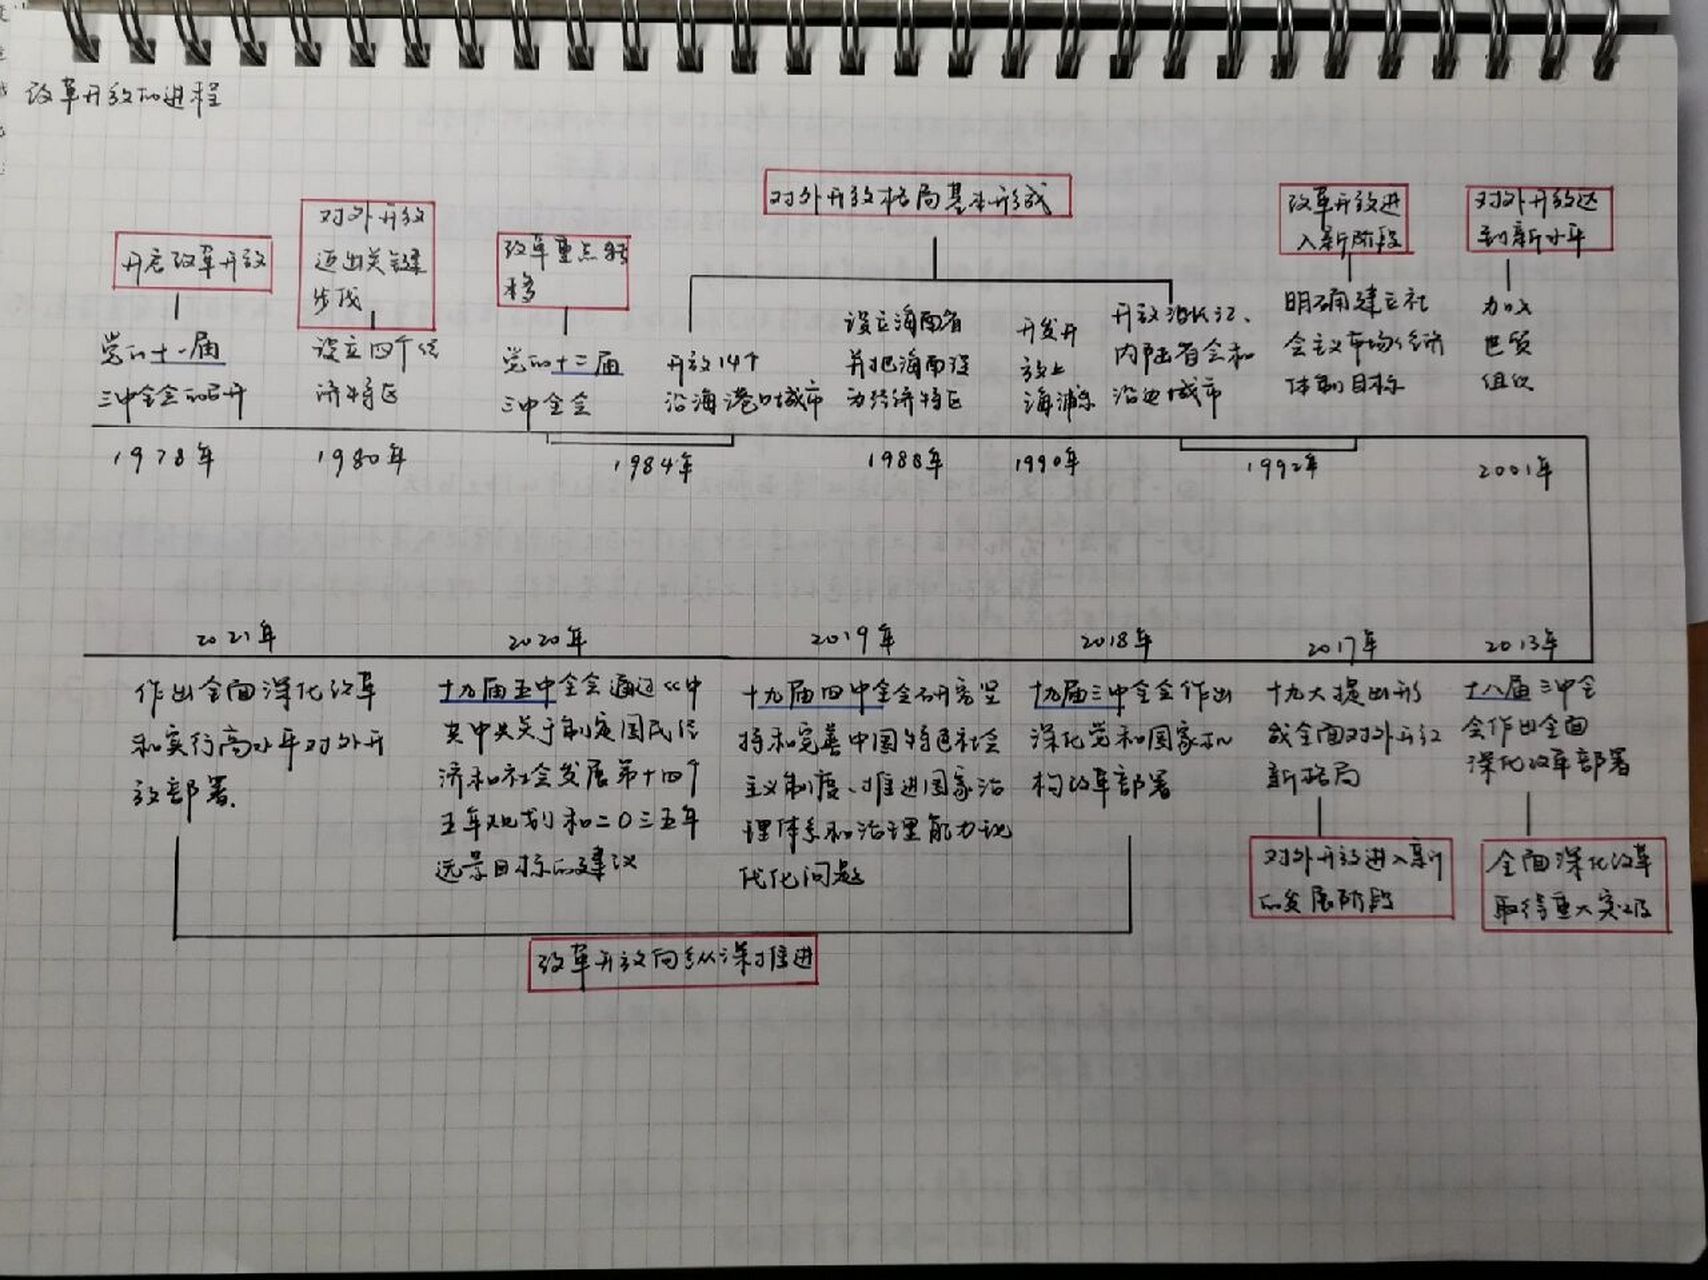 改革开放的进程
开启改革开放
党的十一届
三中全会的召开
1978年
对外开放
迈出关键
步伐
设立四个经
济特区
1980年
改革重点转
移
党的十二届
三中全会
对外开放格局基本形成
开放14个
沿海港口城市
1984年
设立海南省
并把海南设
为经济特区
1988年
开发开
放上
海浦东
1990年
开放沿长江、
内陆省会和
沿边城市
改革开放进
入新阶段
明确建立社
会主义市场经济
体制目标
1992年
对外开放达
到新水平
加入
世贸
组织
2001年
2021年
作出全面深化改革
和实行高水平对外开
放部署.
2020年
十九届五中全会通过《中
共中央关于制定国民经
济和社会发展第十四个
五年规划和二〇三五年
远景目标的建议
2019年
十九届四中全会研究坚
持和完善中国特色社会
主义制度、推进国家治
理体系和治理能力现
代化问题
2018年
十九届三中全会作出
深化党和国家机
构改革部署
改革开放向纵深推进
2017年
十九大提出形
成全面对外开放
新格局
对外开放进入新
的发展阶段
2013年
十八届三中全
会作出全面
深化改革部署
全面深化改革
取得重大突破